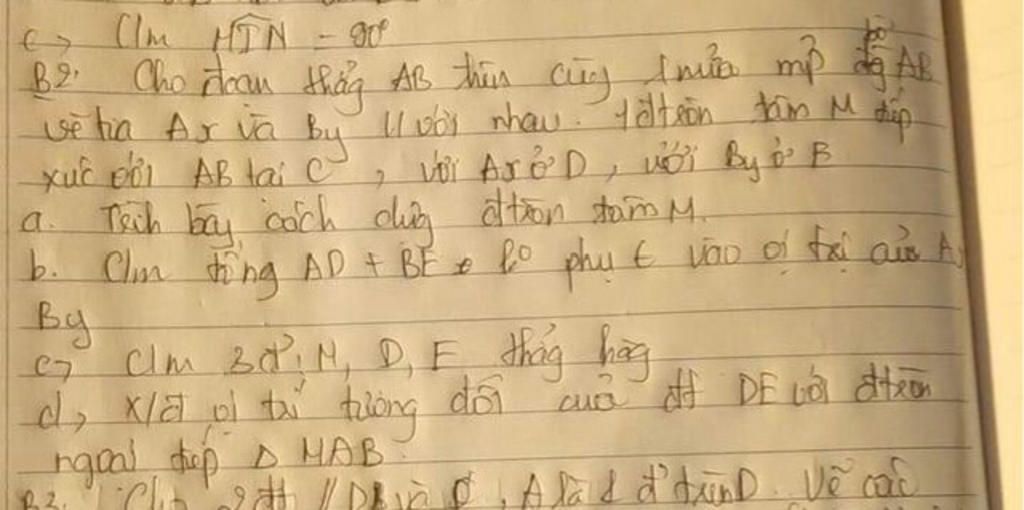 c, Clm MIN = 90°
B2. Cho đoạn thẳng AB trên cùng 1 nửa mp bờ đg AB
vẽ tia Ax và By // với nhau. đtròn tâm M tiếp
xúc với AB tại C, với Ax ở D, với By ở E
a. Trình bày cách dựng đtròn tâm M.
b. Clm tổng AD + BE ko phụ t vào vị trí của A
By
c, Clm 3 đ' M, D, E thẳng hàng
d, Xét vị trí tương đối của đt DE với đtròn
ngoại tiếp Δ MAB.
B3. Cho 2 đt // và A là 1 đ' trên D. Vẽ các